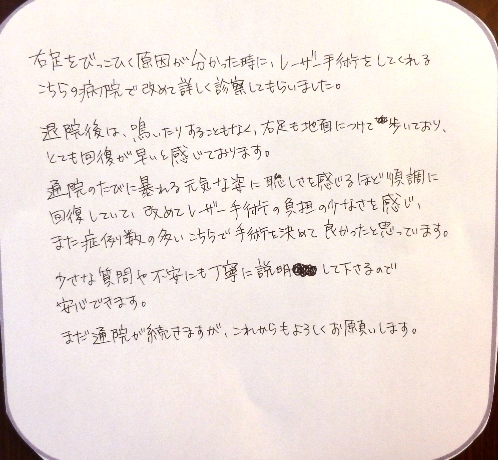 右足をびっこひく原因が分かった時に、レーザー手術をしてくれる
こちらの病院で改めて詳しく診察してもらいました。
退院後は、鳴いたりすることもなく、右足も地面につけて歩いており、
とても回復が早いと感じております。
通院のたびに暴れる元気な姿に聡しさを感じるほど順調に
回復していて、改めてレーザー手術の負担の少なさを感じ、
また症例数の多いこちらで手術を決めて良かったと思っています。
小さな質問や不安にも丁寧に説明して下さるので
安心できます。
まだ通院が続きますが、これからもよろしくお願いします。